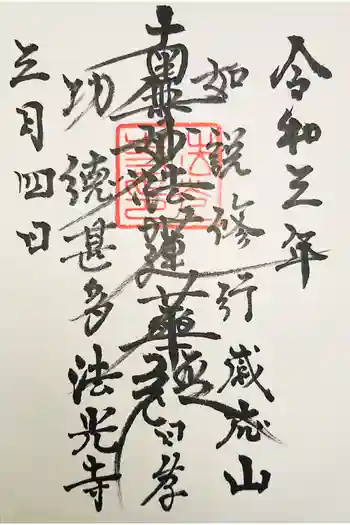 令和三年
如説修行 感応山
南無妙法蓮華経
功徳甚多 法光寺
三月四日